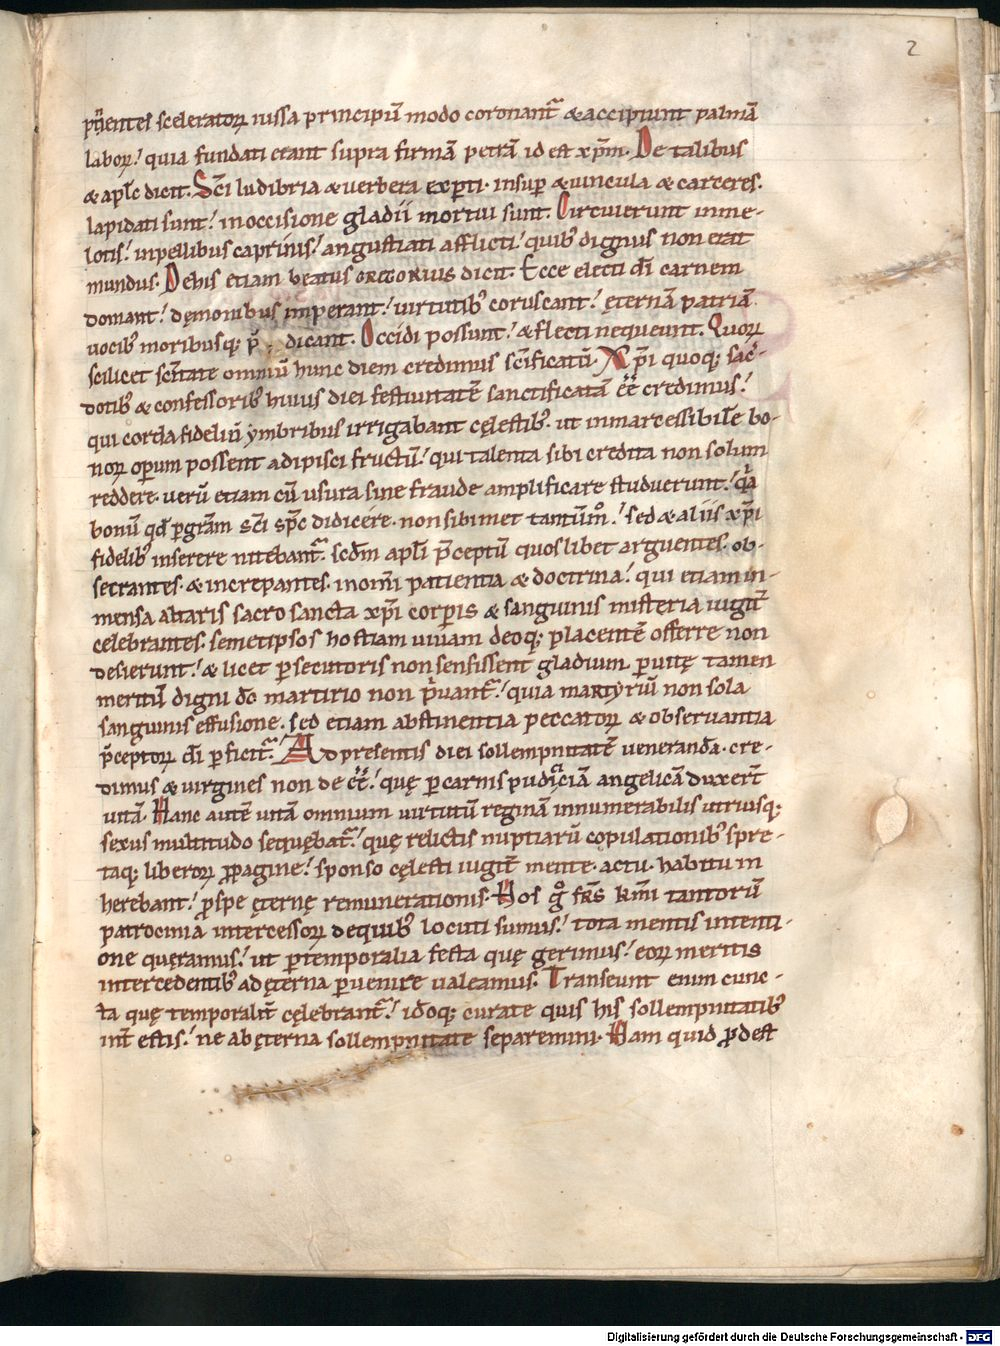 2
scelerator̄ iussa principū modo coronant̄ & accipiunt palmā
labor̄. quia fundati erant supra firmā petrā id est xp̄m. De talibus
& apl̄c dicit. Sc̄i ludibria & verbera experti. insup̄ & vincula & carceres.
lapidati sunt. in occisione gladii mortui sunt. Circuierunt in me-
lotis. in pellibus caprinis. angustiati afflicti. quib; dignus non erat
mundus. De his etiam beatus GREGORIUS dicit. Ecce electi dī carnem
domant. dęmonibus imperant. virtutib; coruscant. ęternā patriā
vocib; moribusq; dicant. Occidi possunt. & flecti nequeunt. Quor̄
scilicet sc̄itate omniū hunc diem credimus sc̄ificatū. Xp̄i quoq; sac̄-
dotib; & confessorib; huius diei festivitatē sanctificatā ēē credimus.
qui corda fideliū ymbribus irrigabant cęlestib;. ut inmarcessibilē bo-
nor̄ op̄um possent adipisci fructū. qui talenta sibi credita non solum
reddere. verū etiam cū usura sine fraude amplificare studuerunt. q̄a
bonū qđ p̄ gr̄am sc̄i sp̄c didicere. non sibimet tantum̊. sed & aliis xp̄i
fidelib; inserere nitebant̄. scd̄m apl̄i p̄ceptū quoslibet arguentes. ob-
secrantes. & increpantes. in om̄i patientia & doctrina. qui etiam in
mensa altaris sacrosancta xp̄i corporis & sanguinis misteria iugit̄
celebrantes. semetipsos hostiam vivam deoq; placentē offerre non
desierunt. & licet p̄secutoris non sensissent gladium. p̄ vitę tamen
meritū digni dō martirio non p̄vant̄. quia martyriū non sola
sanguinis effusione. sed etiam abstinentia peccator̄ & observantia
p̄ceptor̄ dī p̄ficit̄. Ad presentis diei sollempnitatē veneranđa. cre-
dimus & virgines non de ēē. quę p̄ carnis pudiciciā angelicā duxer̄t
vitā. Hanc autē vitā omnium virtutū reginā innumerabilis utriusq;
sexus multitudo sequebat̄. quę relictis nuptiarū copulationib; spre-
taq; liberor̄ p̄pagine. sponso cęlesti iugit̄ mente. actu. habitu in
herebant. p̄ spe ęternę remunerationis. Hos g̊ fr̄s km̄i tantorū
patrocinia intercessor̄ de quib; locuti sumus. tota mentis intenti-
one quęramus. ut p̄ temporalia festa quę gerimus. eor̄ meritis
intercedentib; ad ęterna p̄venire valeamus. Transeunt enim cunc-
ta quę temporalit̄ cęlebrant̄. id̄oq; curate quis his sollempnitatib;
int̄estis. ne ab ęterna sollempnitate separemini. Nam quid p̄dest
Digitalisierung gefördert durch die Deutsche Forschungsgemeinschaft - DFG